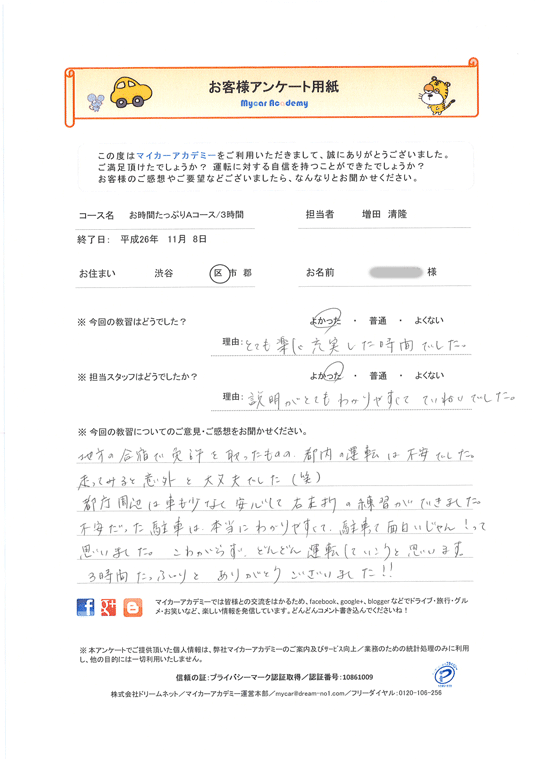 お客様アンケート用紙
Mycar Academy
この度はマイカーアカデミーをご利用いただきまして、誠にありがとうございました。
ご満足頂けたでしょうか？ 運転に対する自信を持つことができたでしょうか？
お客様のご感想やご要望などございましたら、なんなりとお聞かせください。
コース名 お時間たっぷりAコース/3時間 担当者 増田 清隆
終了日： 平成26年 11月 8日
お住まい 渋谷 区 市 郡 お名前 様
※ 今回の教習はどうでした？ よかった ・ 普通 ・ よくない
理由：とても楽しく充実した時間でした。
※ 担当スタッフはどうでしたか？ よかった ・ 普通 ・ よくない
理由：説明がとてもわかりやすくて ていねいでした。
※ 今回の教習についてのご意見・ご感想をお聞かせください。
地方の合宿で免許を取ったものの、都内の運転は不安でした。
走ってみると意外と大丈夫でした（笑）
都庁周辺は車も少なくて安心して右左折の練習ができました。
不安だった駐車は、本当にわかりやすくて、駐車って面白いじゃん！って
思いました。 こわがらず、どんどん運転していこうと思います
3時間たっぷりと ありがとうございました!!
マイカーアカデミーでは皆様との交流をはかるため、facebook、google+、blogger などでドライブ・旅行・グル
メ・お笑いなど、楽しい情報を発信しています。どんどんコメント書き込んでくださいね！
※ 本アンケートでご提供頂いた個人情報は、弊社マイカーアカデミーのご案内及びサービス向上／業務のための統計処理のみに利用
し、他の目的には一切利用いたしません。
信頼の証：プライバシーマーク認証取得／認証番号：10861009
株式会社ドリームネット／マイカーアカデミー運営本部／mycar@dream-no1.com／フリーダイヤル：0120-106-256